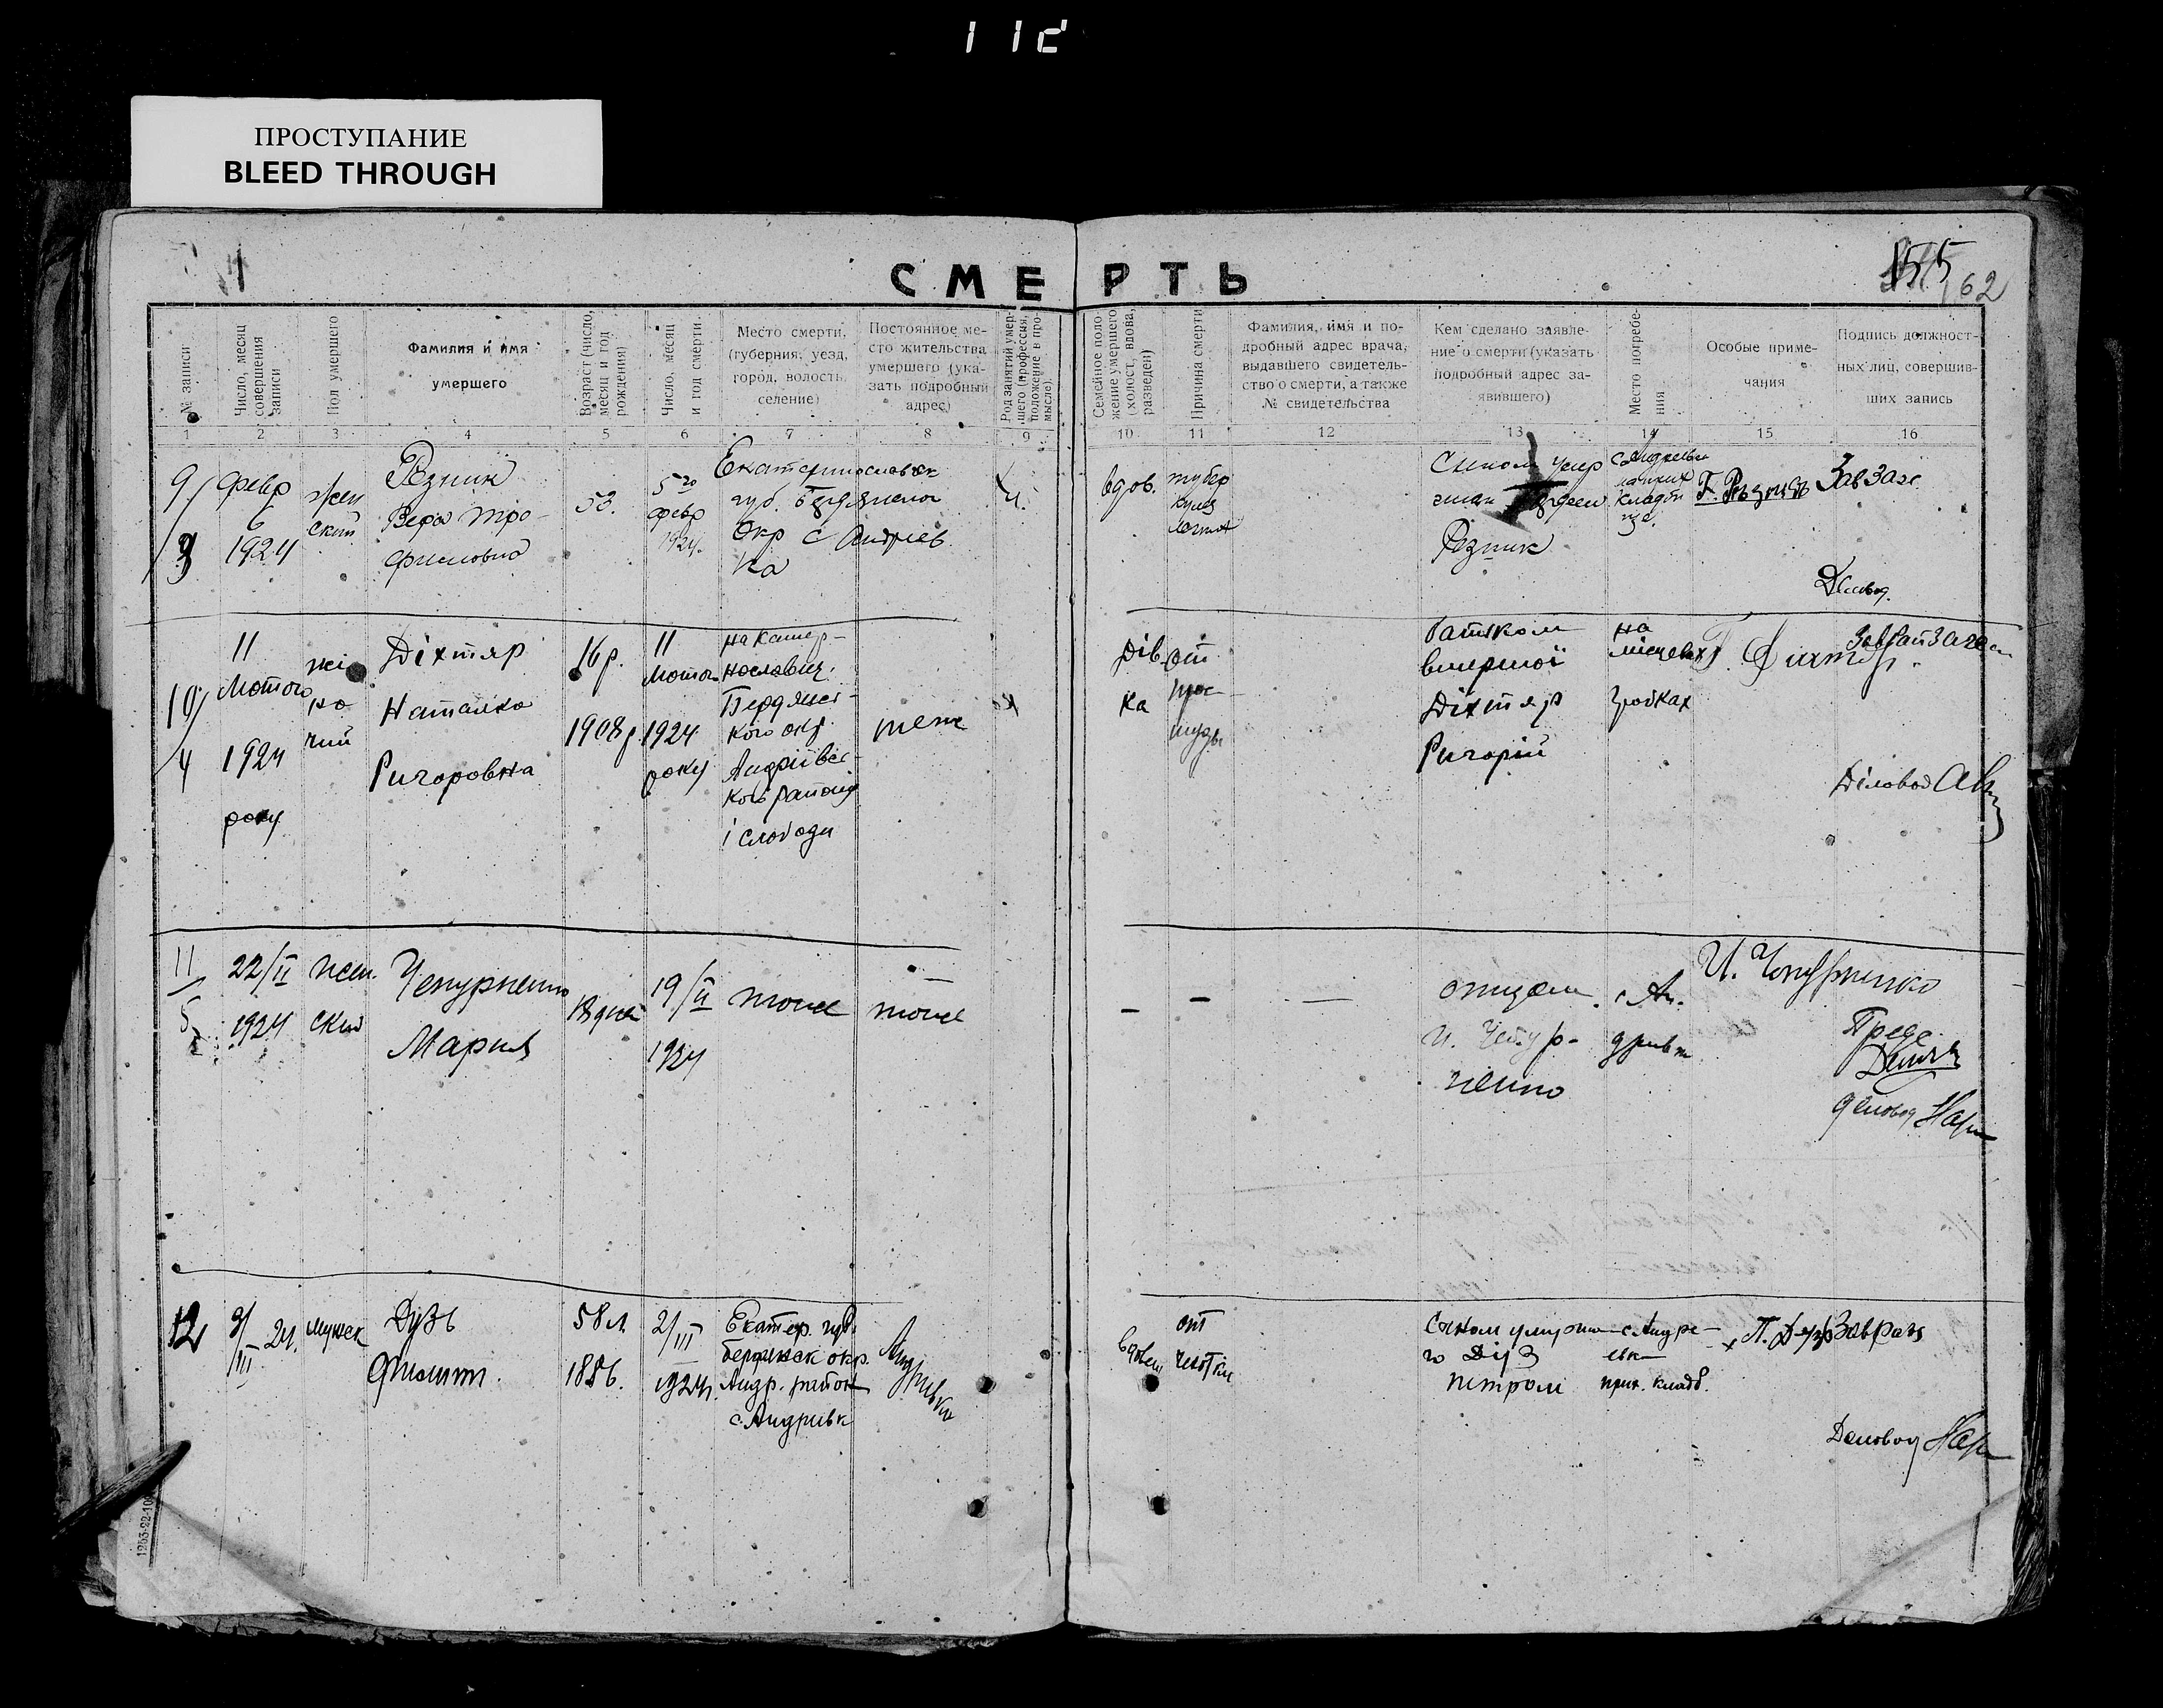 112
ПРОСТУПАНИЕ
BLEED THROUGH
СМЕРТЬ
155
162
№ записи
Число, месяц совершения записи
Пол умершего
Фамилия и имя умершего
Возраст (число, месяц и год рождения)
Число, месяц и год смерти.
Место смерти, (губерния, уезд, город, волость, селение)
Постоянное место жительства умершего (указать подробный адрес)
Род занятий умершего (профессия, положение в промысле).
Семейное положение умершего (холост, вдова, разведен)
Причина смерти
Фамилия, имя и подробный адрес врача, выдавшего свидетельство о смерти, а также № свидетельства
Кем сделано заявление о смерти (указать подробный адрес заявившего)
Место погребения
Особые примечания
Подпись должностных лиц, совершивших запись
1 2 3 4 5 6 7 8 9 10 11 12 13 14 15 16
9/
3
февр
6
1924
жен
ский
Резник
Вера Тро-
фимовна
53.
5го
февр
1924.
Екатеринославск
губ. Бердянског
Окр с Андреев
ка
вдов.
тубер
кулез
легких
Сыном умер
шей
Резник
кладби
ще.
Г. Резникъ
Завзаг
Деловод.
10/
4
11
Лютого
1924
року
жі
но
чий
Діхтяр
Наталка
Ригоровна
16 р.
1908 р.
11
Лютог
1924
року
на Катер-
нославщ.
Бердянсь-
кого окр.
Андріївсь-
кого району
і слободи
теж
Дів
ка
от
прос
туды
Батьком
вмершої
Діхтяр
Ригорій
на
місцевих
гробках
Г. Дихтяр.
Діловод
11
5
22/II
1924
жен.
ский
Чепурненко
Мария
18 дней
19/II
1924
тоже
тоже
—
—
—
отцом.
И. Чепур-
ненко
с Ан.
дривк
И. Чепурненко
Пред.
деловод
12
3/III 24.
мужск
Дузь
Филипп.
58 л.
1886.
2/III
1924
Екатер. губ.
бердянск окр.
Андр. район
с Андривк
Андривка
вдовец
от
чахотки
Сыном умерше
го Дуз
Петром
с Андре-
евк
прих. кладб.
П. Дузь
Завразг
Деловод
1253-22-10